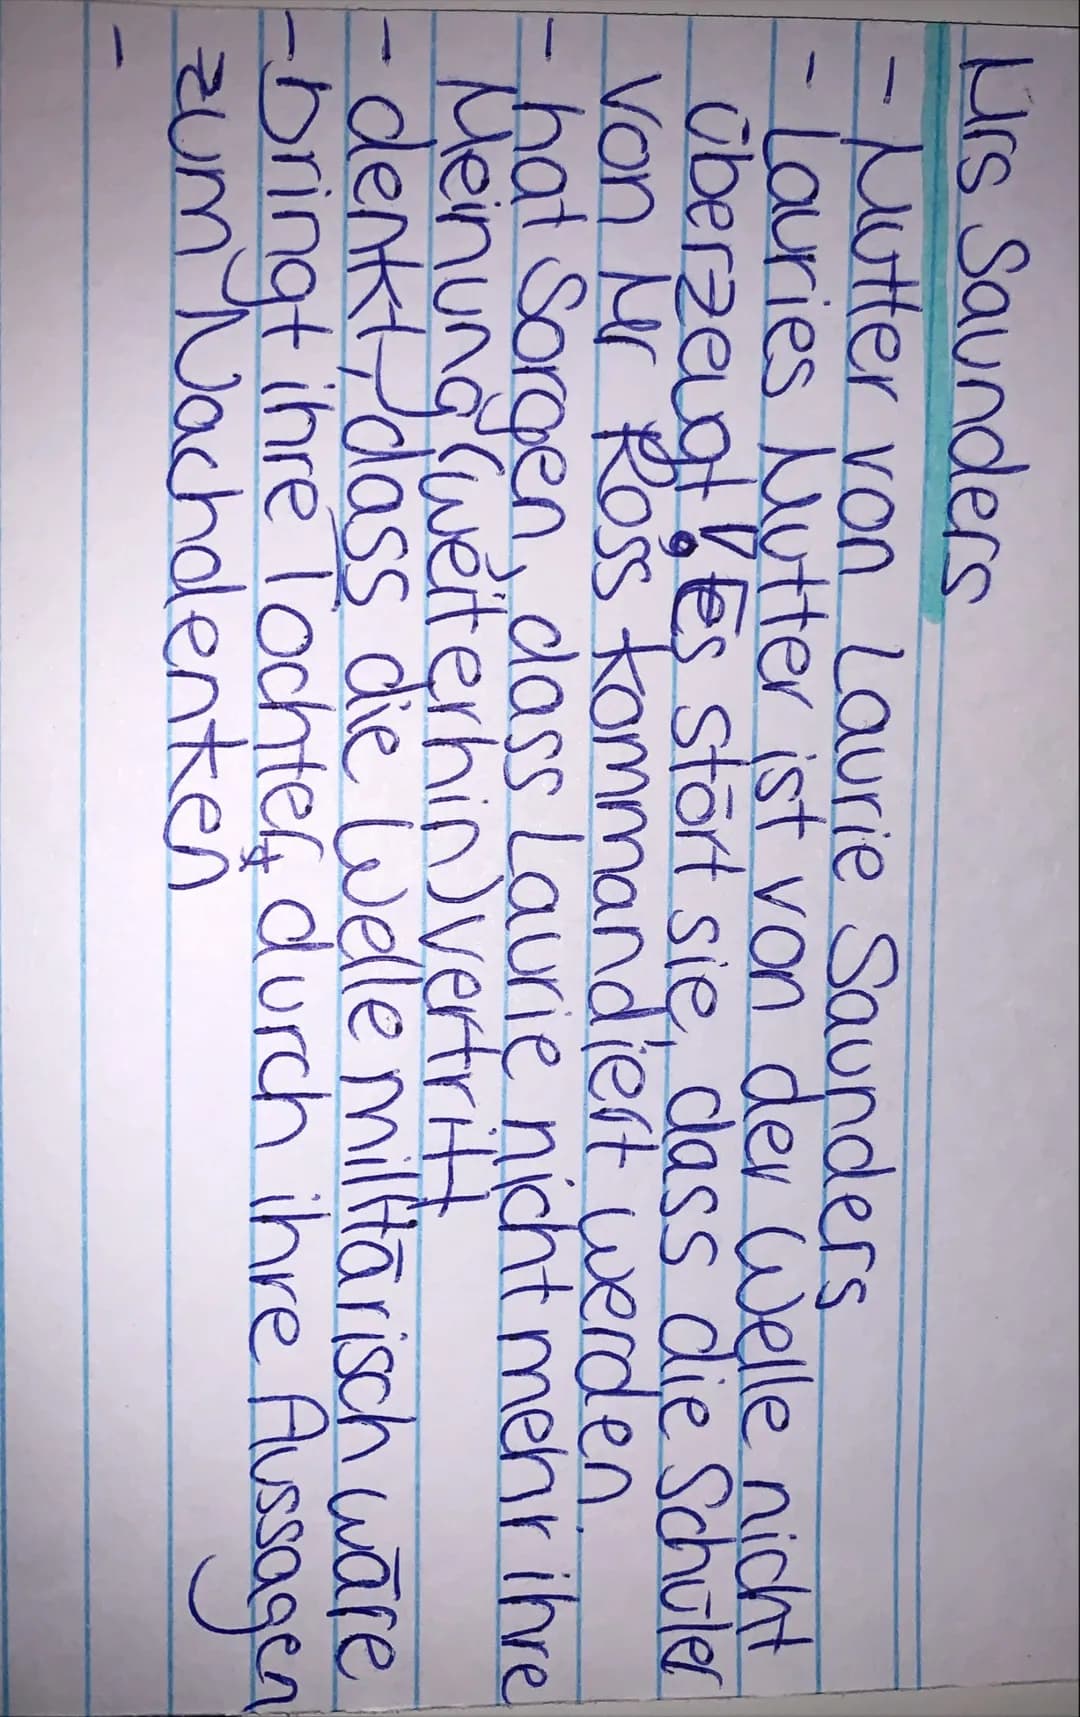 Mrs Saunders
- Mutter von Laurie Saunders
- Lauries Mutter ist von der Welle nicht
überzeugt! Es stört sie, dass die Schüler
von Mr Ross kommandiert werden
- hat Sorgen, dass Laurie nicht mehr ihre
Meinung (weiterhin) vertritt
- denkt, dass die Welle militärisch wäre
- bringt ihre Tochter, durch ihre Aussagen
zum Nachdenken
-